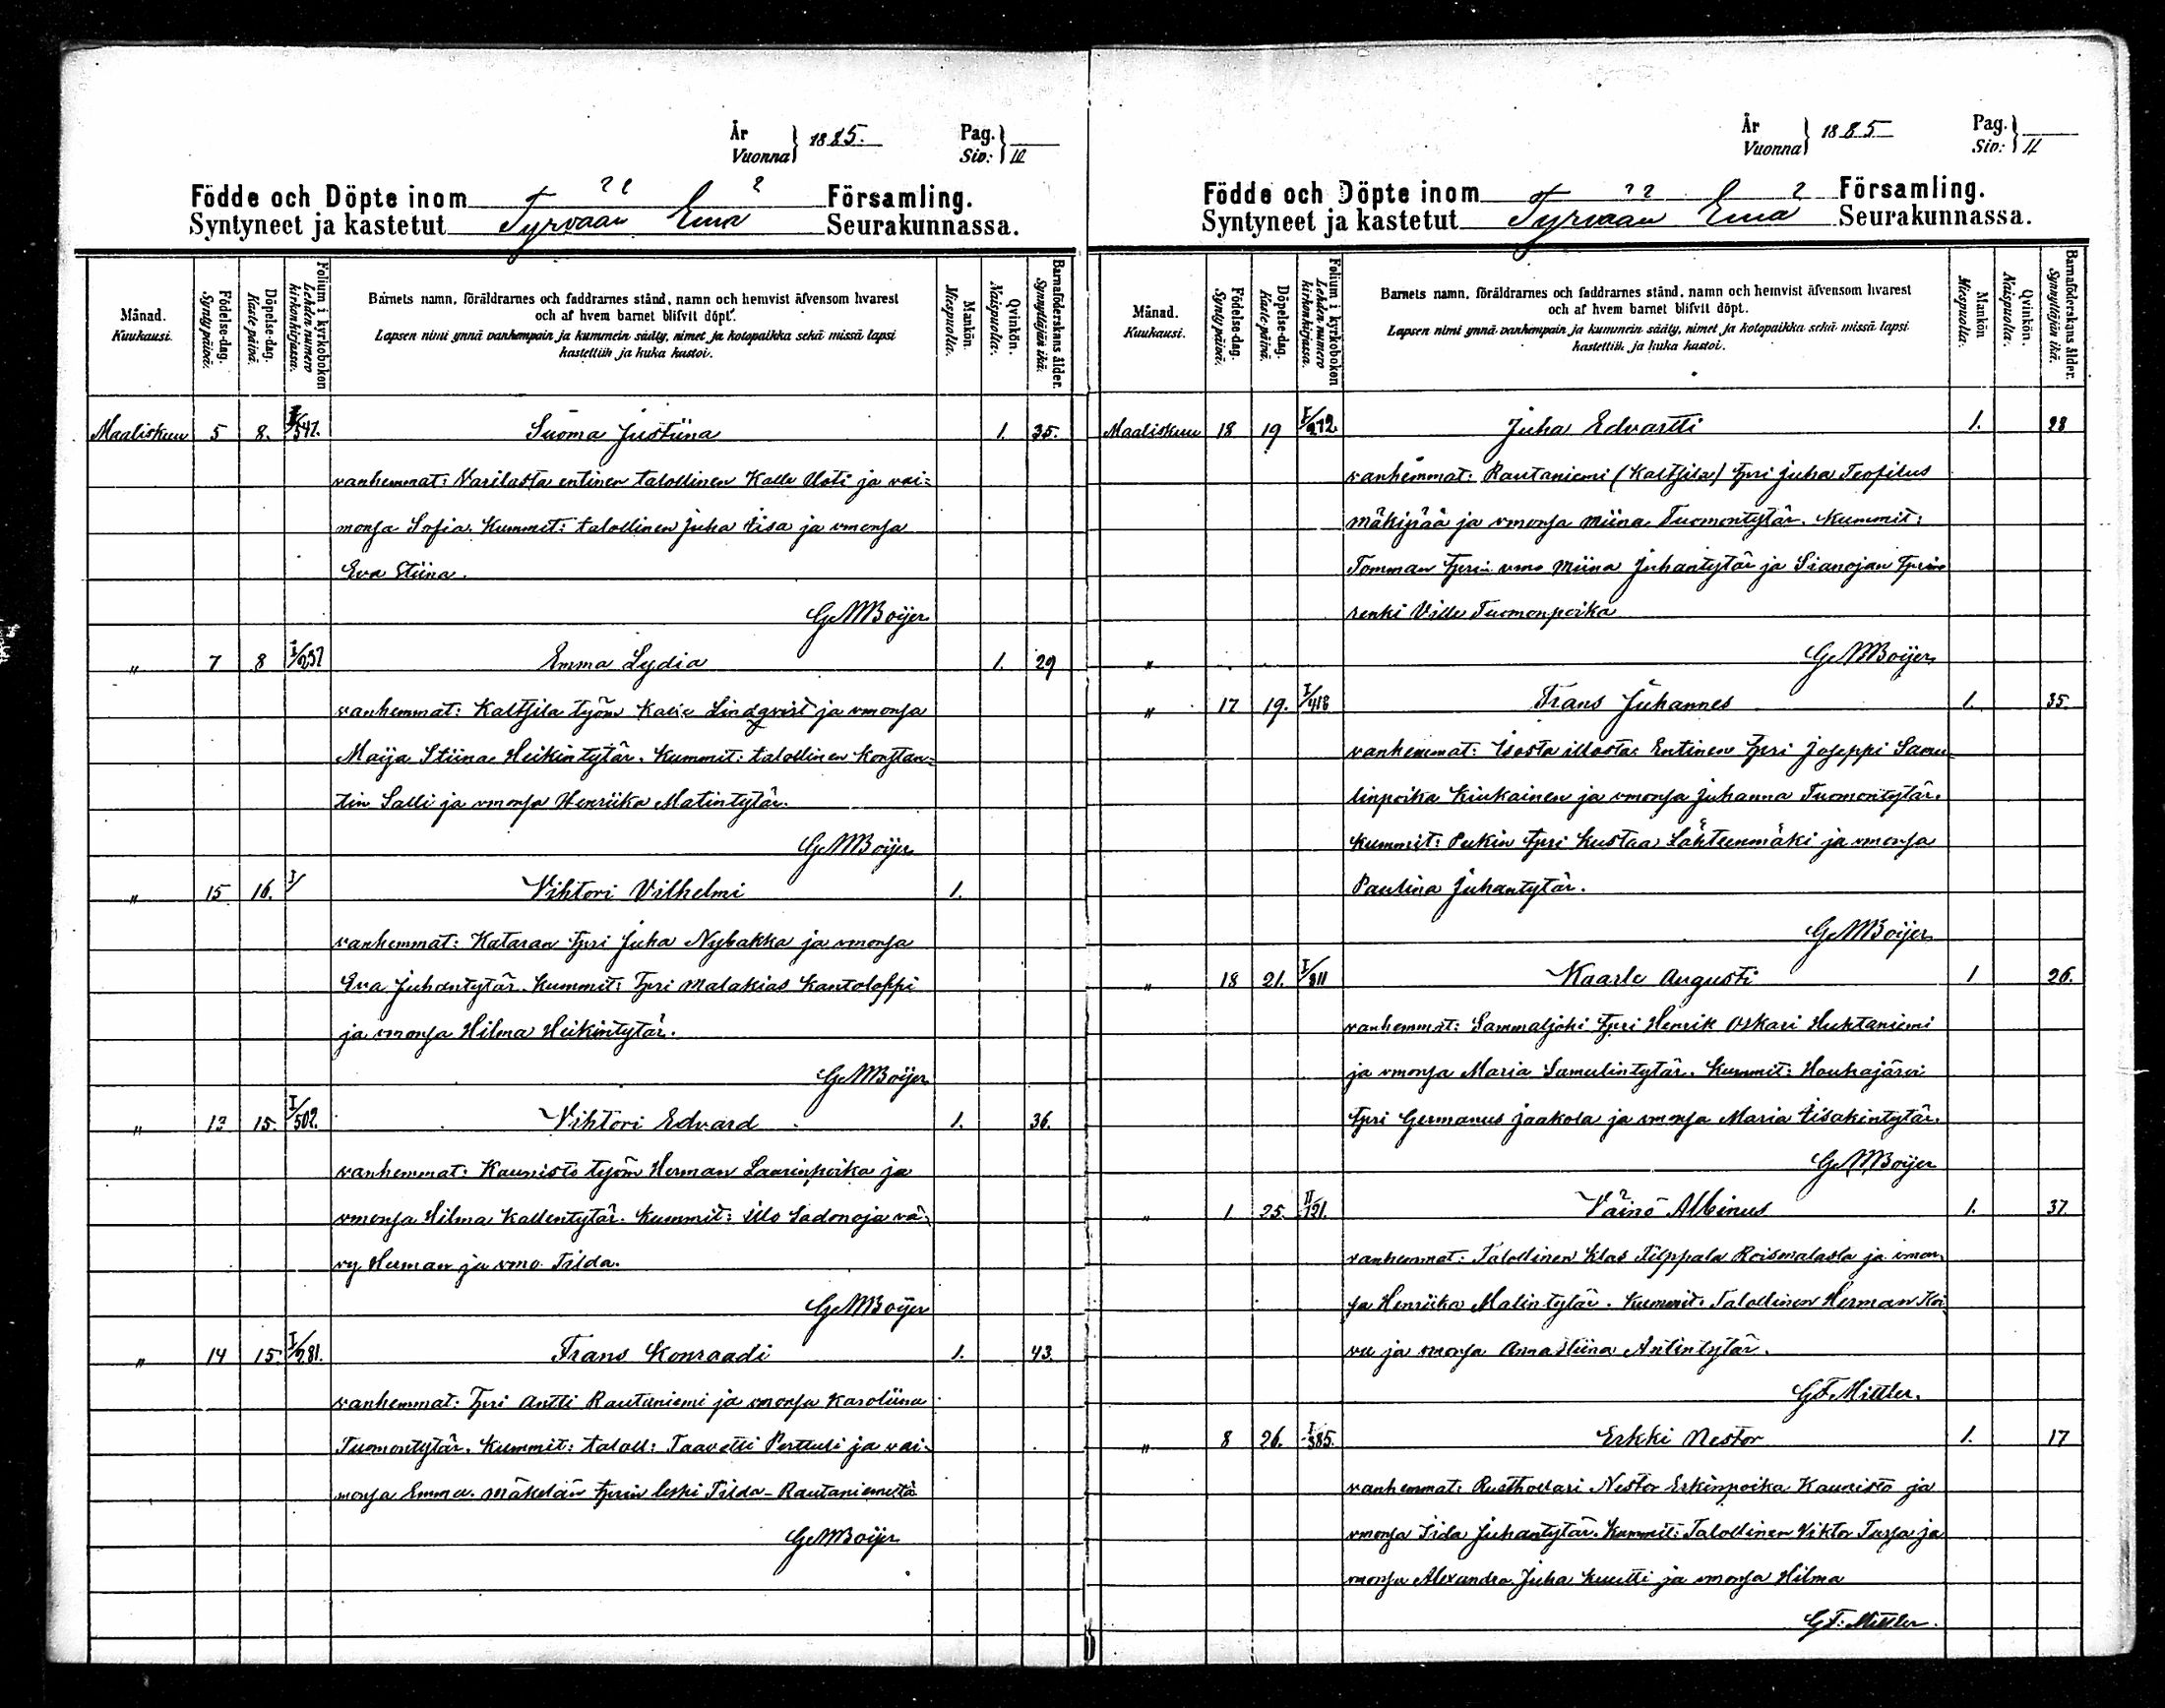 År
Vuonna } 1885.
Pag.
Siv: } 10
Födde och Döpte inom Församling.
Syntyneet ja kastetut Tyrvään Emä Seurakunnassa.
Månad.
Kuukausi.
Födelse-dag.
Synty päivä.
Döpelse-dag.
Kaste päivä.
Folium i kyrkobokon
Lehden numero
kirkonkirjassa.
Barnets namn, föräldrarnes och faddrarnes stånd, namn och hemvist äfvensom hvarest
och af hvem barnet blifvit döpt.
Lapsen nimi ynnä vanhempain ja kummein sääty, nimet ja kotopaikka sekä missä lapsi
kastettiin ja kuka kastoi.
Mankön.
Miespuolia.
Qvinkön.
Naispuolia.
Barnaföderskans ålder.
Synnyttäjän ikä.
Maaliskuu 5 8. I/547. Suoma Justiina 1. 35.
vanhemmat: Varilasta entinen talollinen Kalle Uoti ja vai=
monsa Sofia. Kummit: talollinen Juha Iisa ja vmonsa
Eva Stiina.
G. M. Boijer
" 7 8 I/237 Emma Lydia 1. 29
vanhemmat: Kaltsila työm Kalle Lindqvist ja vmonsa
Maija Stiina Heikintytär. Kummit: talollinen Konstan=
tin Salli ja vmonsa Henriika Matintytär.
G. M. Boijer
" 15 16. I/ Vihtori Vilhelmi 1.
vanhemmat: Kataran tpri Juha Nybakka ja vmonsa
Eva Juhantytär. Kummit: Tpri Malakias Kantoloppi
ja vmonsa Hilma Heikintytär.
G. M. Boijer
" 13 15. I/502. Vihtori Edvard 1. 36.
vanhemmat: Kaunisto työm Herman Laurinpoika ja
vmonsa Hilma Kallentytär. Kummit: Illo Ladonoja vä=
vy Herman ja vmo Tilda.
G. M. Boijer
" 14 15. I/281. Frans Konraadi 1. 43.
vanhemmat: Tpri Antti Rautaniemi ja vmonsa Karoliina
Tuomontytär. Kummit: taloll: Taavetti Perttuli ja vai=
monsa Emma. Mäkelän tprin leski Tilda Rautaniemeltä
G. M. Boijer
År
Vuonna } 1885
Pag.
Siv: } 11
Födde och Döpte inom Församling.
Syntyneet ja kastetut Tyrvään Emä Seurakunnassa.
Månad.
Kuukausi.
Födelse-dag.
Synty päivä.
Döpelse-dag.
Kaste päivä.
Folium i kyrkobokon
Lehden numero
kirkonkirjassa.
Barnets namn, föräldrarnes och faddrarnes stånd, namn och hemvist äfvensom hvarest
och af hvem barnet blifvit döpt.
Lapsen nimi ynnä vanhempain ja kummein sääty, nimet ja kotopaikka sekä missä lapsi
kastettiin ja kuka kastoi.
Mankön
Miespuolia.
Qvinkön.
Naispuolia.
Barnaföderskans ålder.
Synnyttäjän ikä.
Maaliskuu 18 19 I/272 Juha Edvartti 1. 28
vanhemmat: Rautaniemi (Kaltsila) tpri Juha Teofilus
Mäkipää ja vmonsa Miina Tuomontytär. Kummit:
Tomman tprin vmo Miina Juhantytär ja Sianojan tprin
renki Ville Tuomonpoika
" G. M. Boijer
" 17 19. I/418 Frans Juhannes 1. 35.
vanhemmat: Isosta illosta Entinen tpri Joseppi Samu
linpoika Kiukainen ja vmonsa Juhanna Tuomontytär.
Kummit: Pukin tpri Kustaa Lähteenmäki ja vmonsa
Paulina Juhantytär.
G. M. Boijer
" 18 21. I/311 Kaarle Augusti 1 26.
vanhemmat: Sammaljoki tpri Henrik Oskari Huhtaniemi
ja vmonsa Maria Samulintytär. Kummit: Houhajärvi
tpri Germanus Jaakola ja vmonsa Maria Iisakintytär.
G. M. Boijer
" 1 25. II/121. Väinö Albinus 1. 37.
vanhemmat: Talollinen Klas Tilppala Roismalasta ja vmon
sa Henriika Matintytär. Kummit: Talollinen Herman Koi
vu ja vmonsa Anna Stiina Antintytär.
G. F. Mittler.
" 8 26. I/385. Erkki Nestor 1. 17
vanhemmat: Rusthollari Nestor Erkinpoika Kaunisto ja
vmonsa Iida Juhantytär. Kummit: Talollinen Viktor Tursa ja
vmonsa Alexandra Juha Kuutti ja vmonsa Hilma
G. F. Mittler.